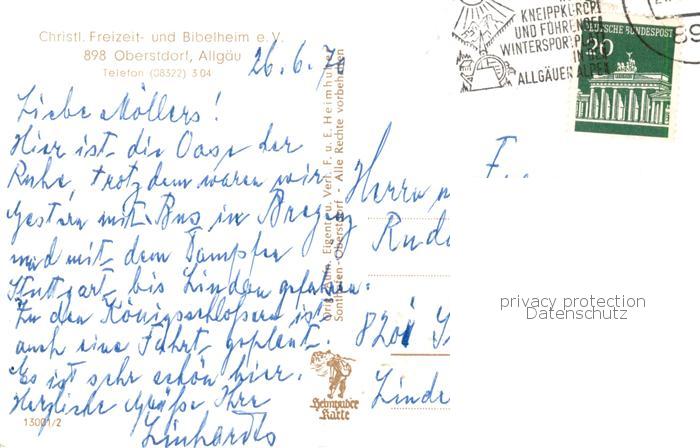 Christl. Freizeit- und Bibelheim e. V.
898 Oberstdorf, Allgäu
Telefon (08322) 3 04
26.6.70
Liebe Möllers!
Hier ist die Oase der
Ruhe, trotzdem waren wir
gestern mit Bus in Bregenz
und mit dem Dampfer
Stuttgart bis Lindau gefahren.
Zu den Königsschlössern ist
auch eine Fahrt geplant.
Es ist sehr schön hier.
Herzliche Grüße Ihre
Linhardts
13001/2
Heimhuber
Karte
Eigentum u. Verl. F. u. E. Heimhuber
Sonthofen-Oberstdorf - Alle Rechte vorbehalten
KNEIPPKURORT
UND FÜHRENDER
WINTERSPORTPLATZ
IN DEN
ALLGÄUER ALPEN
89
20
DEUTSCHE BUNDESPOST
F..
Herrn
Rudo
8201
Linde
privacy protection
Datenschutz